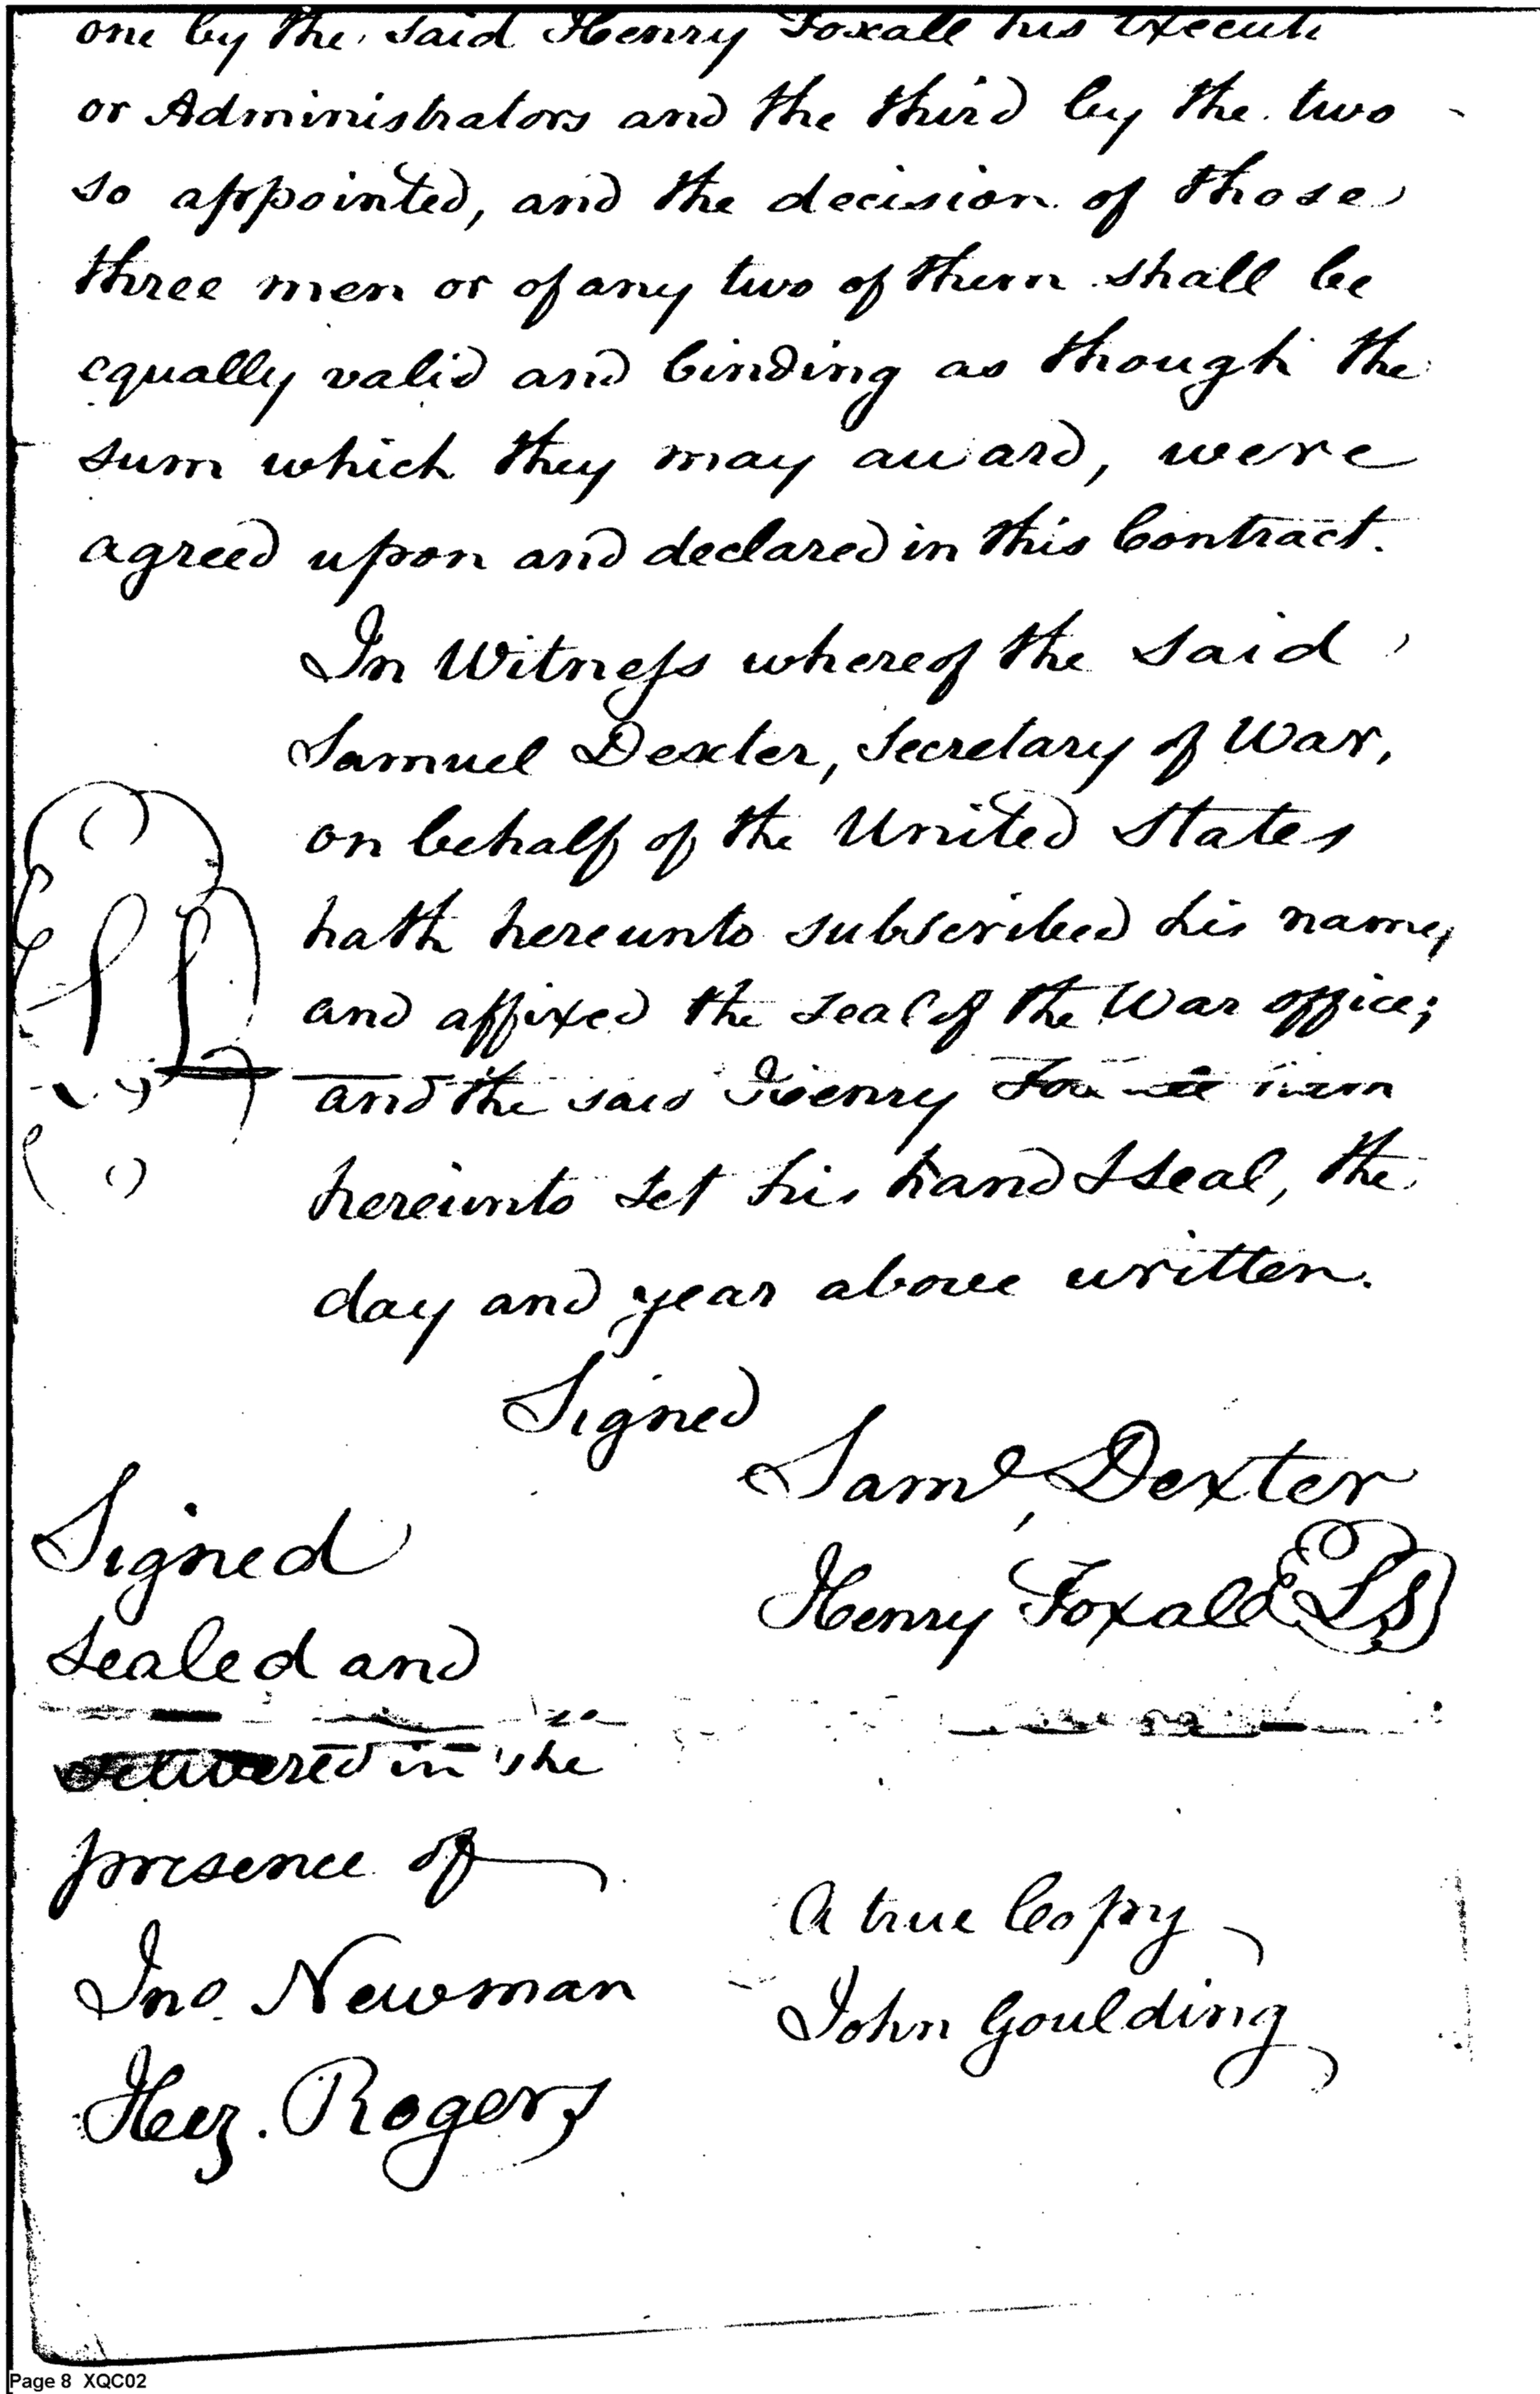 one by the said Henry Foxall his Execut
or Administrators and the third by the two
so appointed, and the decision of those
three men or of any two of them shall be
equally valid and binding as though the
sum which they may award, were
agreed upon and declared in this Contract.
In Witness whereof the said
Samuel Dexter, Secretary of War,
on behalf of the United States
hath hereunto subscribed his name,
and affixed the seal of the War office;
and the said Henry
hereunto set his hand & seal, the
day and year above written.
Signed
Saml Dexter
Henry Foxall LS
Signed
sealed and
delivered in the
presence of
Jno. Newman
Hez. Rogers
A true Copy
John Goulding
Page 8 XQC02